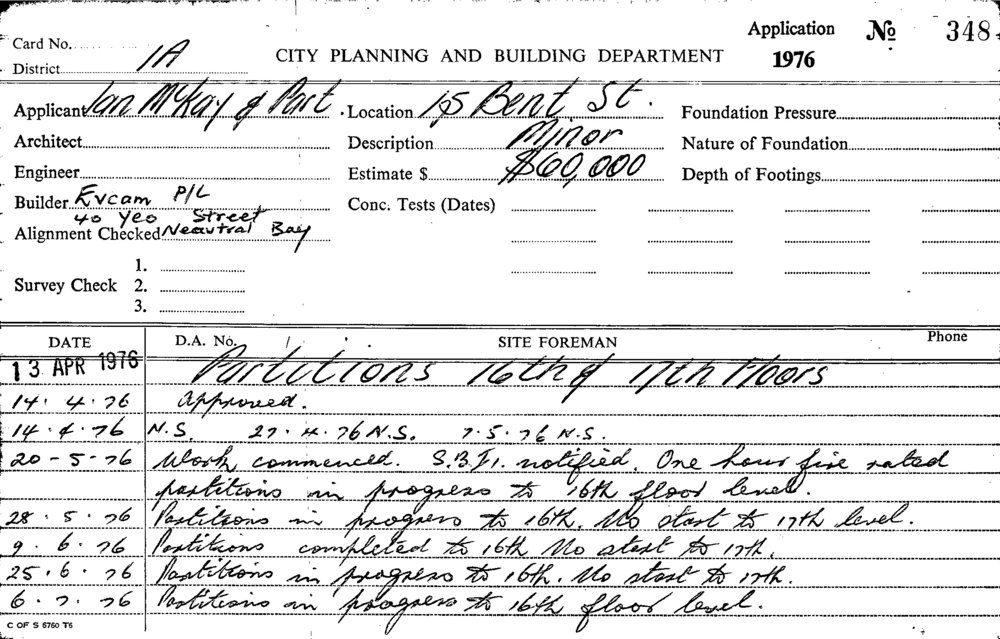 Application No 348
Card No.
1976
District 1A
CITY PLANNING AND BUILDING DEPARTMENT
Applicant Ian McKay & Part. Location 1-5 Bent St. Foundation Pressure
Architect Description Minor Nature of Foundation
Engineer Estimate $ $60,000 Depth of Footings
Builder Evcam P/L Conc. Tests (Dates)
40 Yeo Street
Alignment Checked Neautral Bay
1.
Survey Check 2.
3.
DATE D.A. No. SITE FOREMAN Phone
13 APR 1976 Partitions 16th & 17th Floors
14.4.76 Approved.
14.4.76 N.S. 27.4.76 N.S. 7.5.76 N.S.
20-5-76 Work commenced. S.B.I. notified. One hour fire rated
partitions in progress to 16th floor level.
28.5.76 Partitions in progress to 16th. No start to 17th level.
9.6.76 Partitions completed to 16th No start to 17th.
25.6.76 Partitions in progress to 16th. No start to 17th.
6.7.76 Partitions in progress to 16th floor level.
C OF S 6760 T6